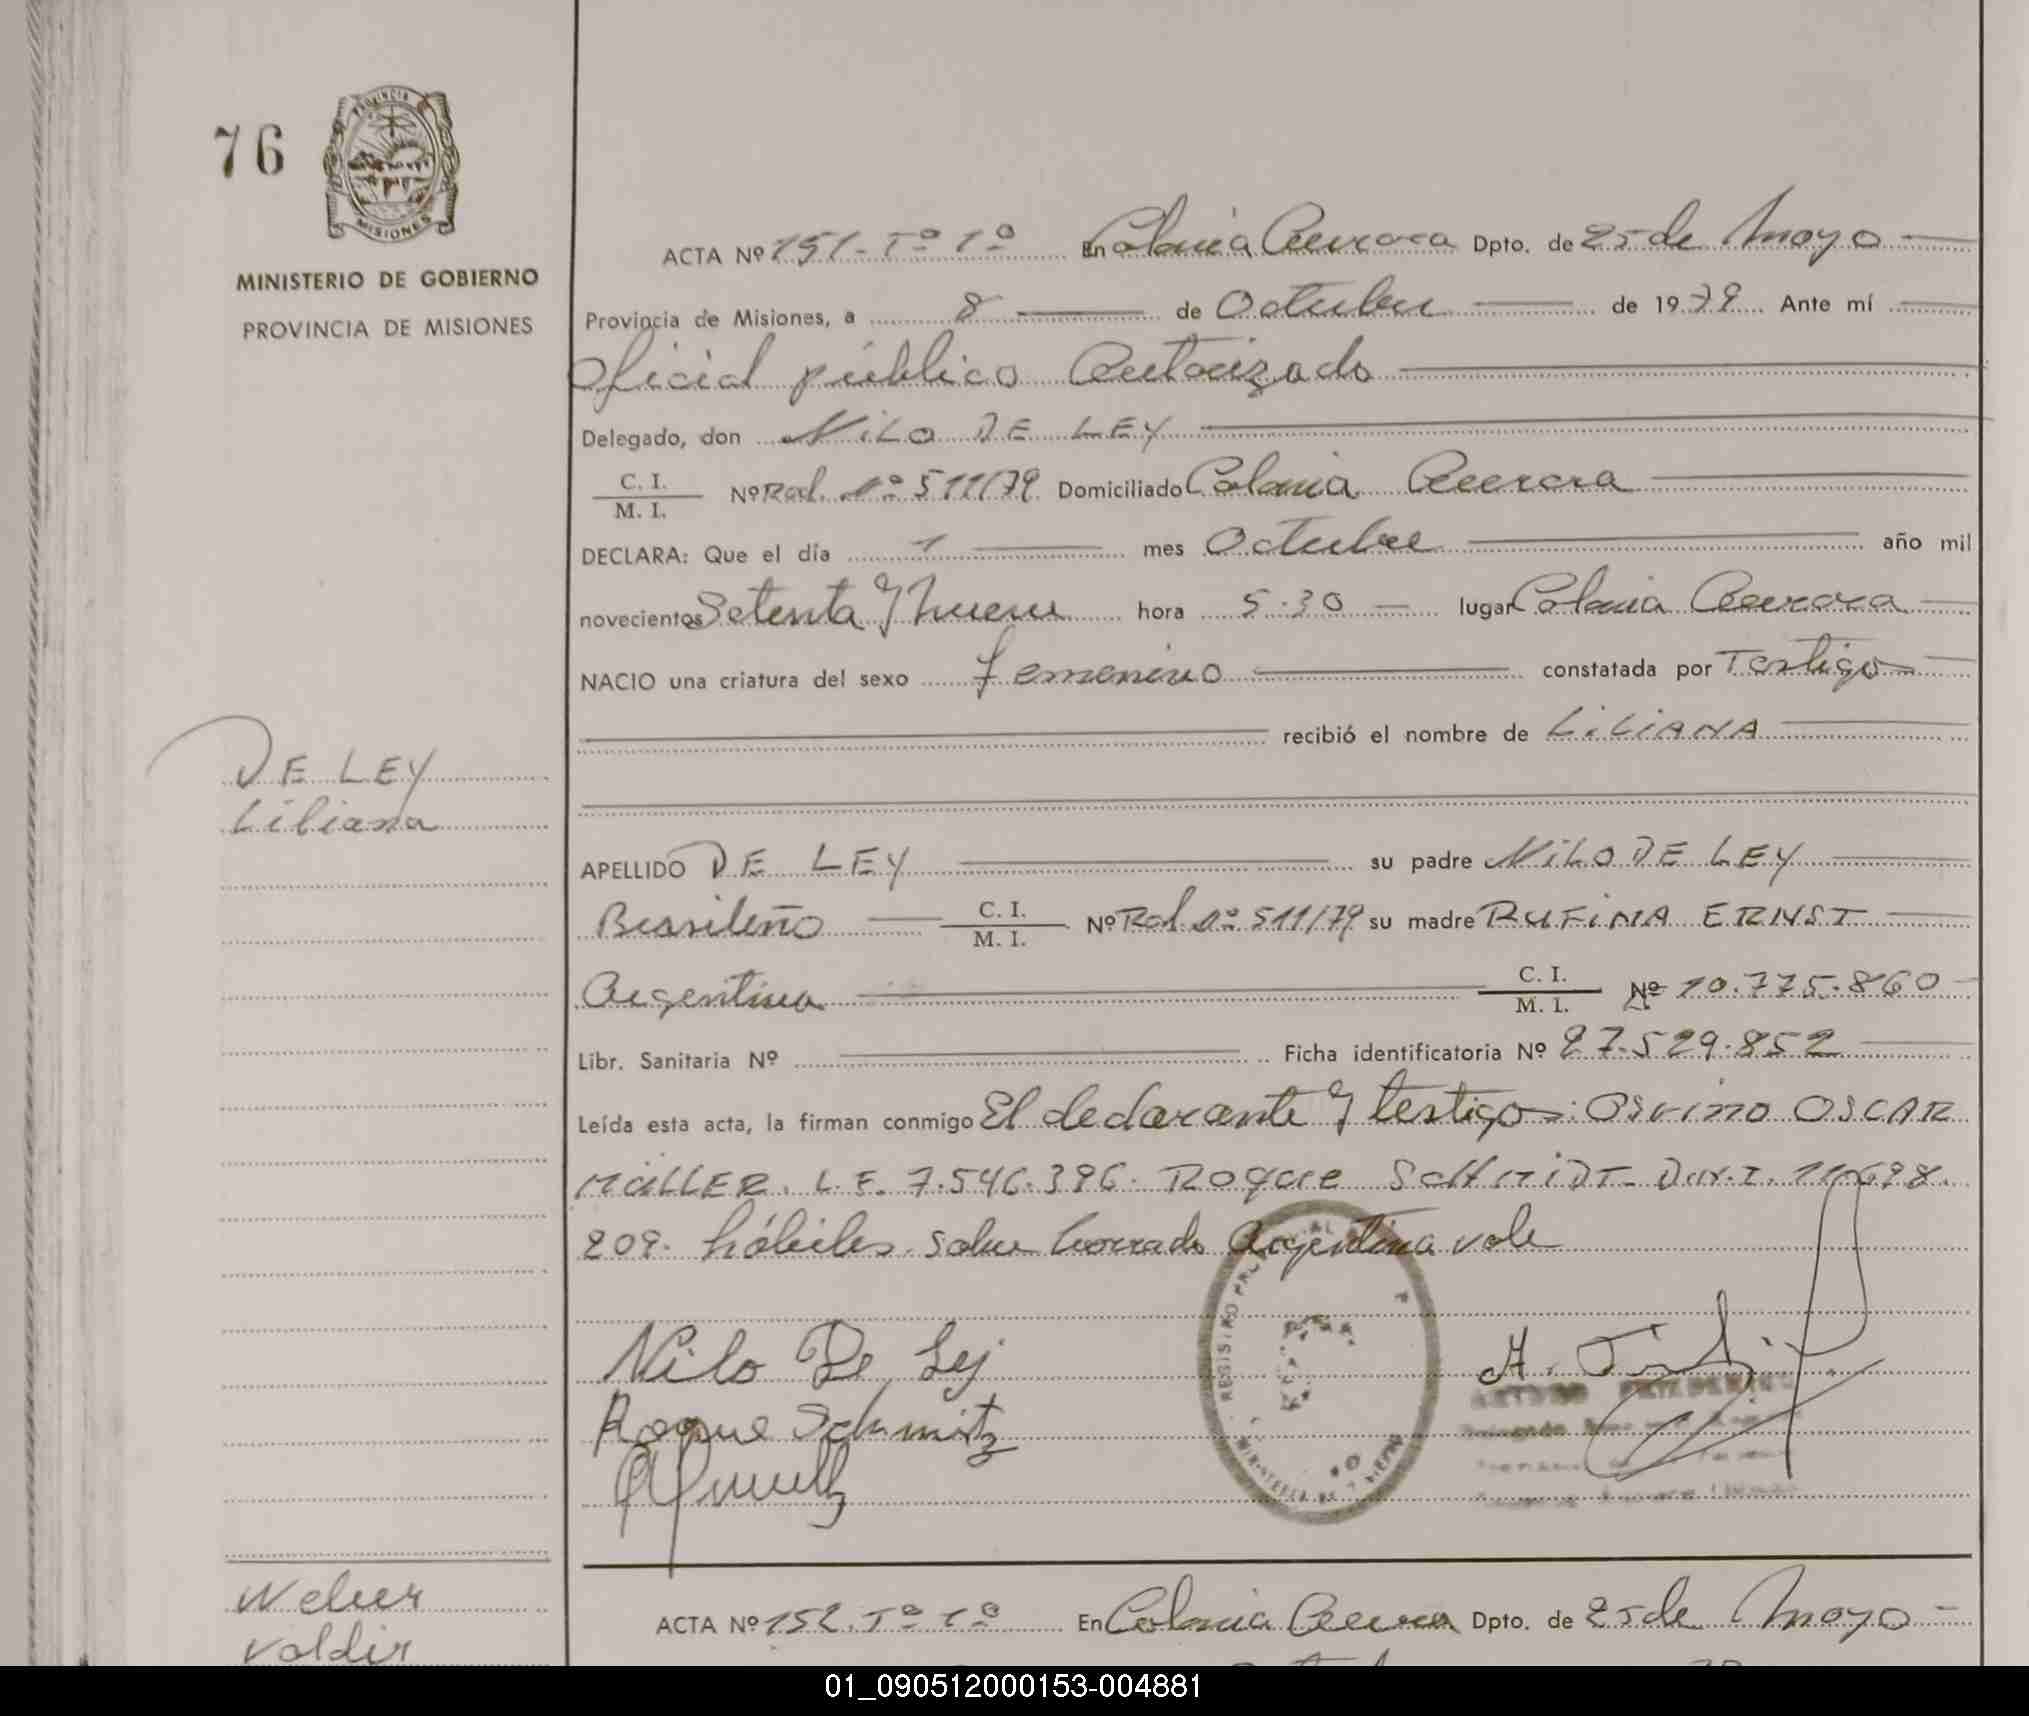 76
PROVINCIA
MISIONES
MINISTERIO DE GOBIERNO
PROVINCIA DE MISIONES
ACTA Nº 151. Tº 1º En Colonia Aurora Dpto. de 25 de Mayo
Provincia de Misiones, a 8 de Octubre de 1979 Ante mí
Oficial público Autorizado
Delegado, don NiLO DE LEY
C. I.
M. I.
Nº Rad. Nº 511/79 Domiciliado Colonia Aurora
DECLARA: Que el día 1 mes Octubre año mil
novecientos Setenta y nueve hora 5.30 lugar Colonia Aurora
NACIO una criatura del sexo femenino constatada por Testigos
recibió el nombre de LiLiANA
DE LEY
Liliana
APELLIDO DE LEY su padre NiLO DE LEY
Brasileño C. I.
M. I.
Nº Rad. Nº 511/79 su madre RUFiNA ERNST
Argentina C. I.
M. I.
Nº 10.775.860
Libr. Sanitaria Nº Ficha identificatoria Nº 27.529.852
Leída esta acta, la firman conmigo El declarante y testigos: OSVINO OSCAR
MÜLLER. L.E. 7.546.396. Roque SCHMiDT. D.N.I. 11.698.
209. hábiles. Sobre borrado Argentina vale
Nilo De Lej
Roque Schmitz
REGISTRO
MINISTERIO DE GOBIERNO
Weber
Valdir
ACTA Nº 152. Tº 1º En Colonia Aurora Dpto. de 25 de Mayo
01_090512000153-004881